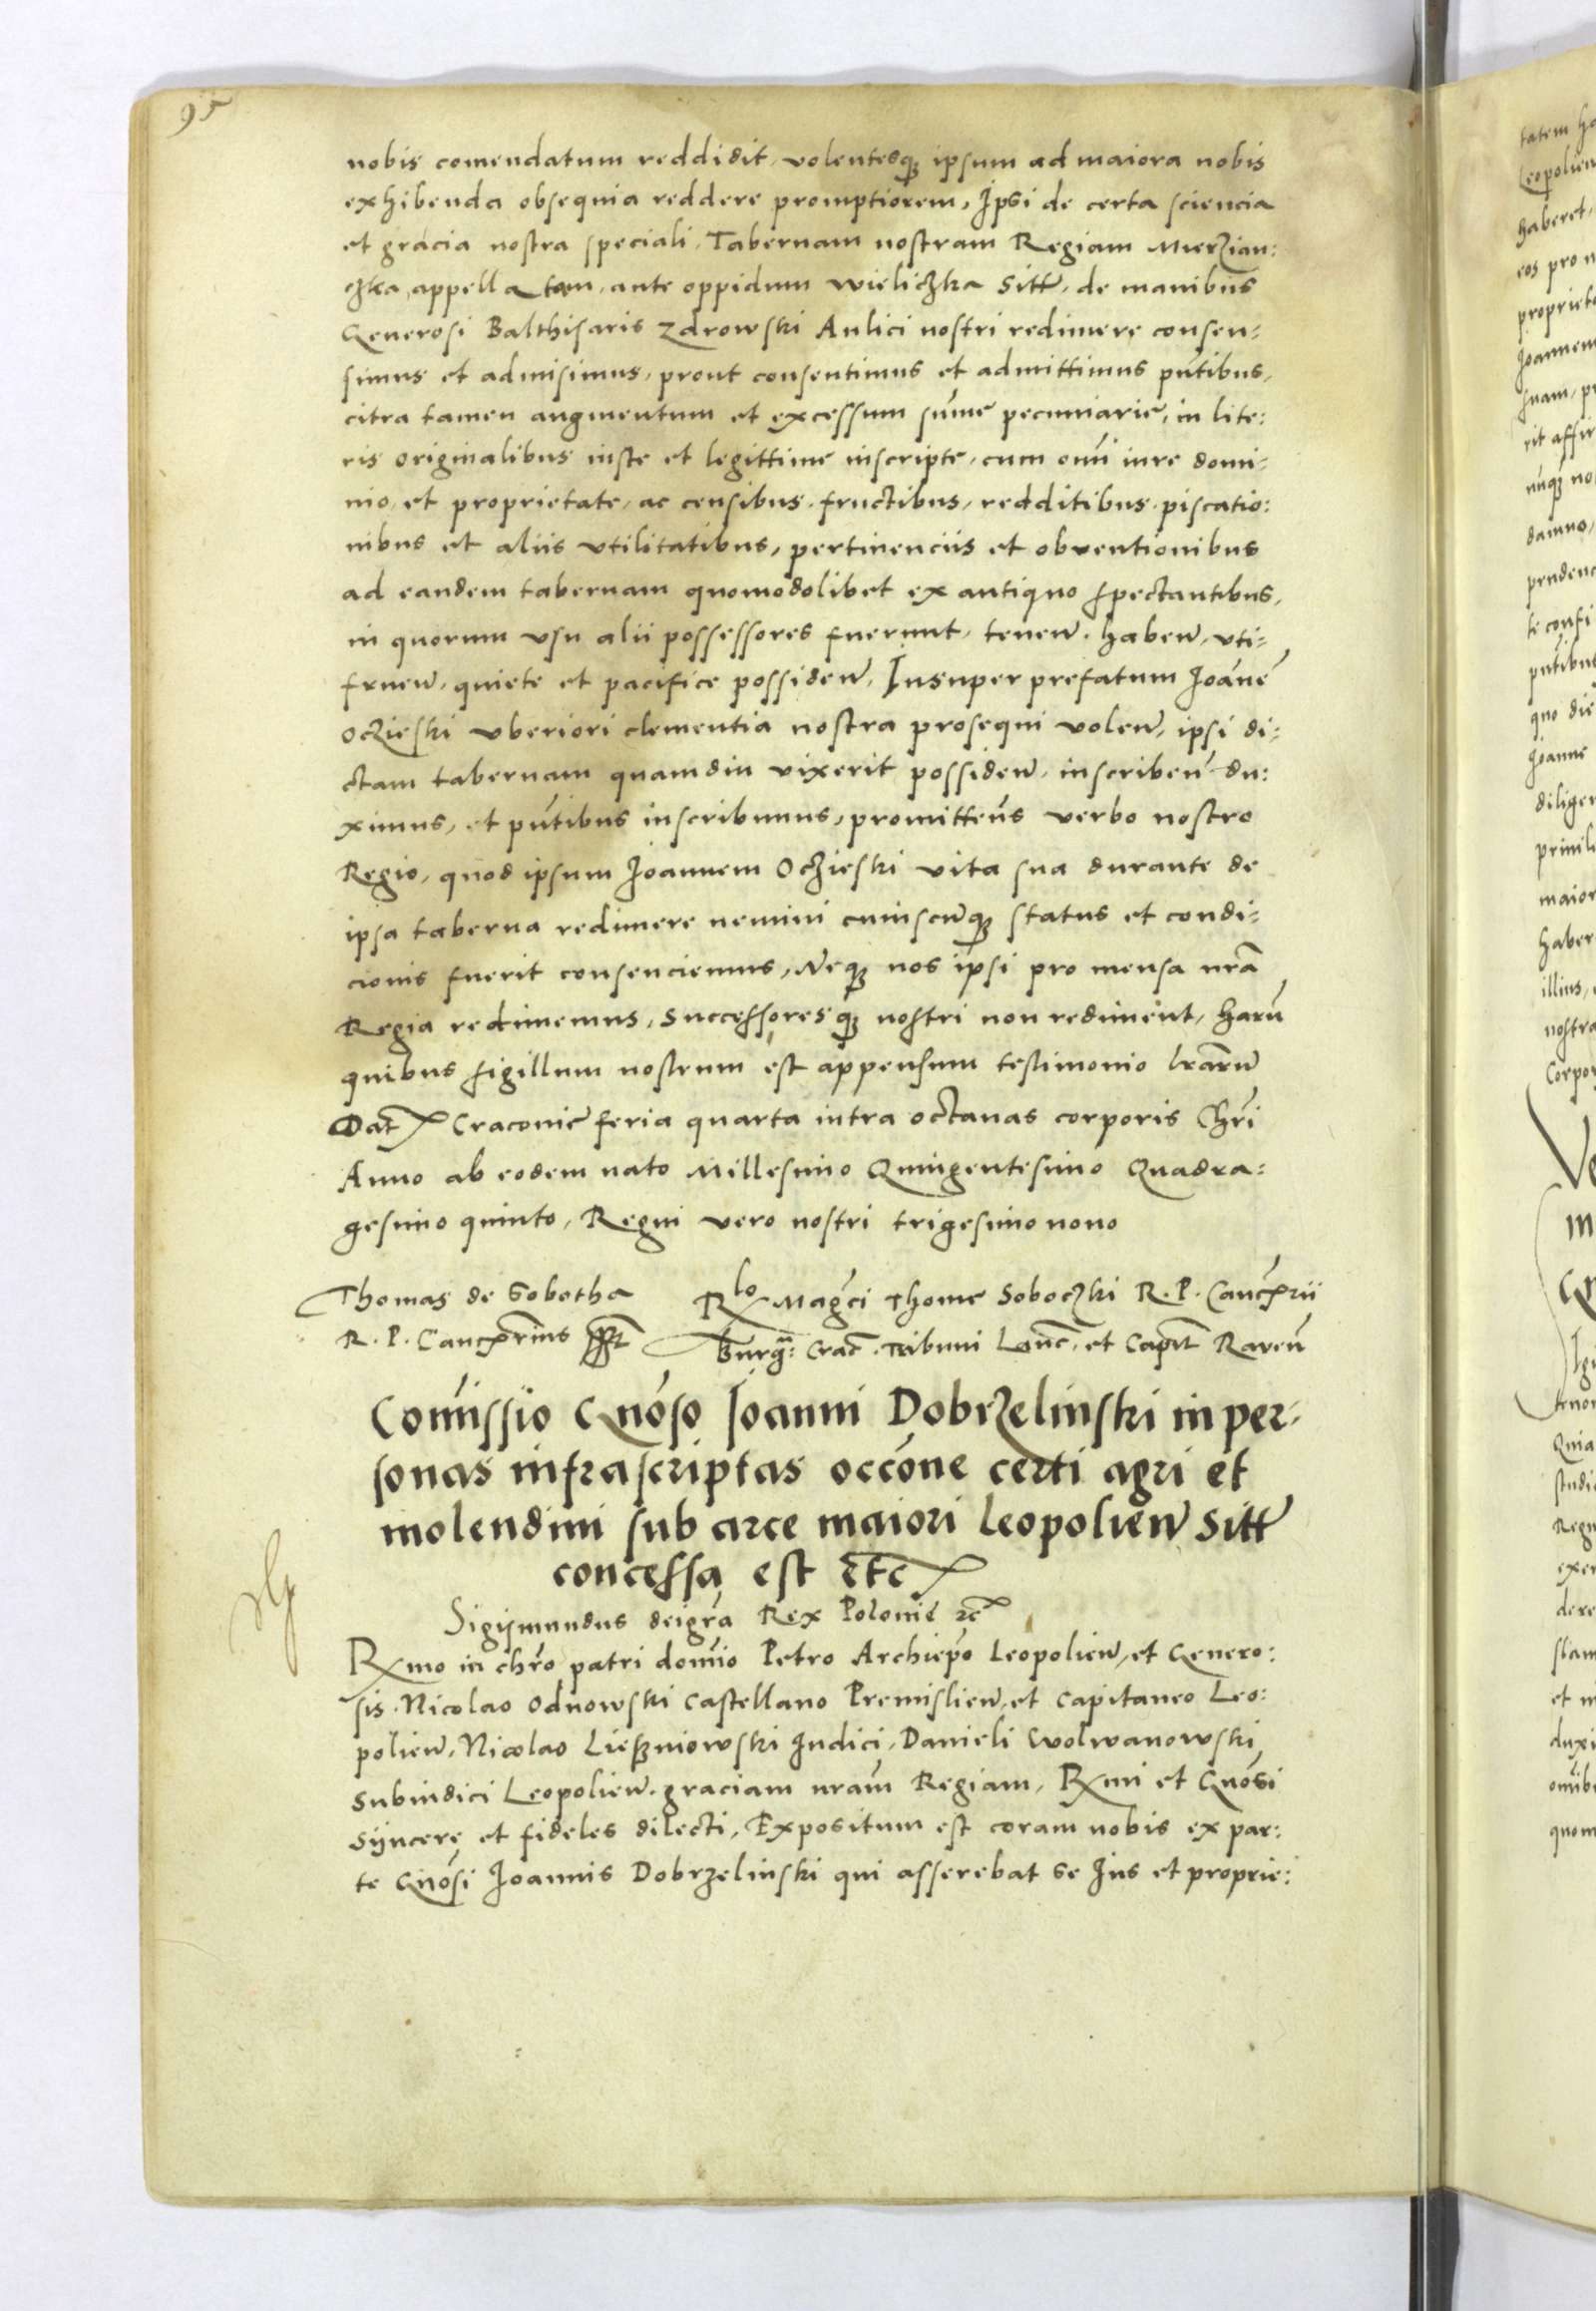 95
nobis comendatum reddidit, volentesq; ipsum ad maiora nobis
exhibenda obsequia reddere promptiorem, Ipsi de certa sciencia
et gracia nostra speciali, Tabernam nostram Regiam Mierzian:
czka, appellatam, ante oppidum wieliczka sitt̃, de manibus
Generosi Balthisaris Zdrowski Aulici nostri redimere consen-
simus et admisimus, prout consentimus et admittimus pñtibus,
citra tamen augmentum et excessum sume pecuniarie, in lite:
ris originalibus iuste et legittime inscripte, cum omñi iure domi-
nio, et proprietate, ac censibus, fructibus, redditibus, piscatio:
nibus et aliis vtilitatibus, pertinenciis et obventionibus
ad eandem tabernam quomodolibet ex antiquo spectantibus,
in quorum vsu alii possessores fuerunt, teneñ, habeñ, vti-
frueñ, quiete et pacifice possideñ, Insuper prefatum Joañe
Oczieski vberiori clementia nostra prosequi voleñ, ipsi di-
ctam tabernam quamdiu vixerit possideñ, inscribeñ du:
ximus, et pñtibus inscribimus, promitteñs verbo nostro
Regio, quod ipsum Joannem Oczieski vita sua durante de
ipsa taberna redimere nemini cuiuscũq; status et condi-
cionis fuerit consenciemus, Neq; nos ipsi pro mensa nrã
Regia redimemus, Successoresq; nostri non redimeñt, harũ
quibus sigillum nostrum est appensum testimonio lrãrũ
Dat̃ Cracovie feria quarta intra octauas corporis Chri̴
Anno ab eodem nato Millesimo Quingentesimo Quadra:
gesimo quinto, Regni vero nostri trigesimo nono
Thomas de Sobotha Rlo Mag̃ci Thome Soboczki R. P. Canc̃rii
R. P. Canc̃rius Burg̃: Crac̃. Tribuni Lanc̃, et Capit̃ Raveñ
Com̃issio Gnõso Joanni Dobrzelinski in per-
sonas infrascriptas occõne certi agri et
molendini sub arce maiori Leopolieñ sitt̃
concessa est etc̃
Sigismundus deigr̃a Rex Polonie ⁊c̃
Rxmo in chr̃o patri domĩo Petro Archiepõ Leopolieñ, et Genero:
sis. Nicolao Odnowski Castellano Premislieñ, et Capitaneo Leo:
polieñ, Nicolao Lieszniowski Judici, Danieli Wolwanowski
Subiudici Leopolieñ. graciam nrãm Regiam, Rxmi et Gnõsi
syncere et fideles dilecti, Expositum est coram nobis ex par:
te Gnõsi Joannis Dobrzelinski qui asserebat se Jus et proprie: